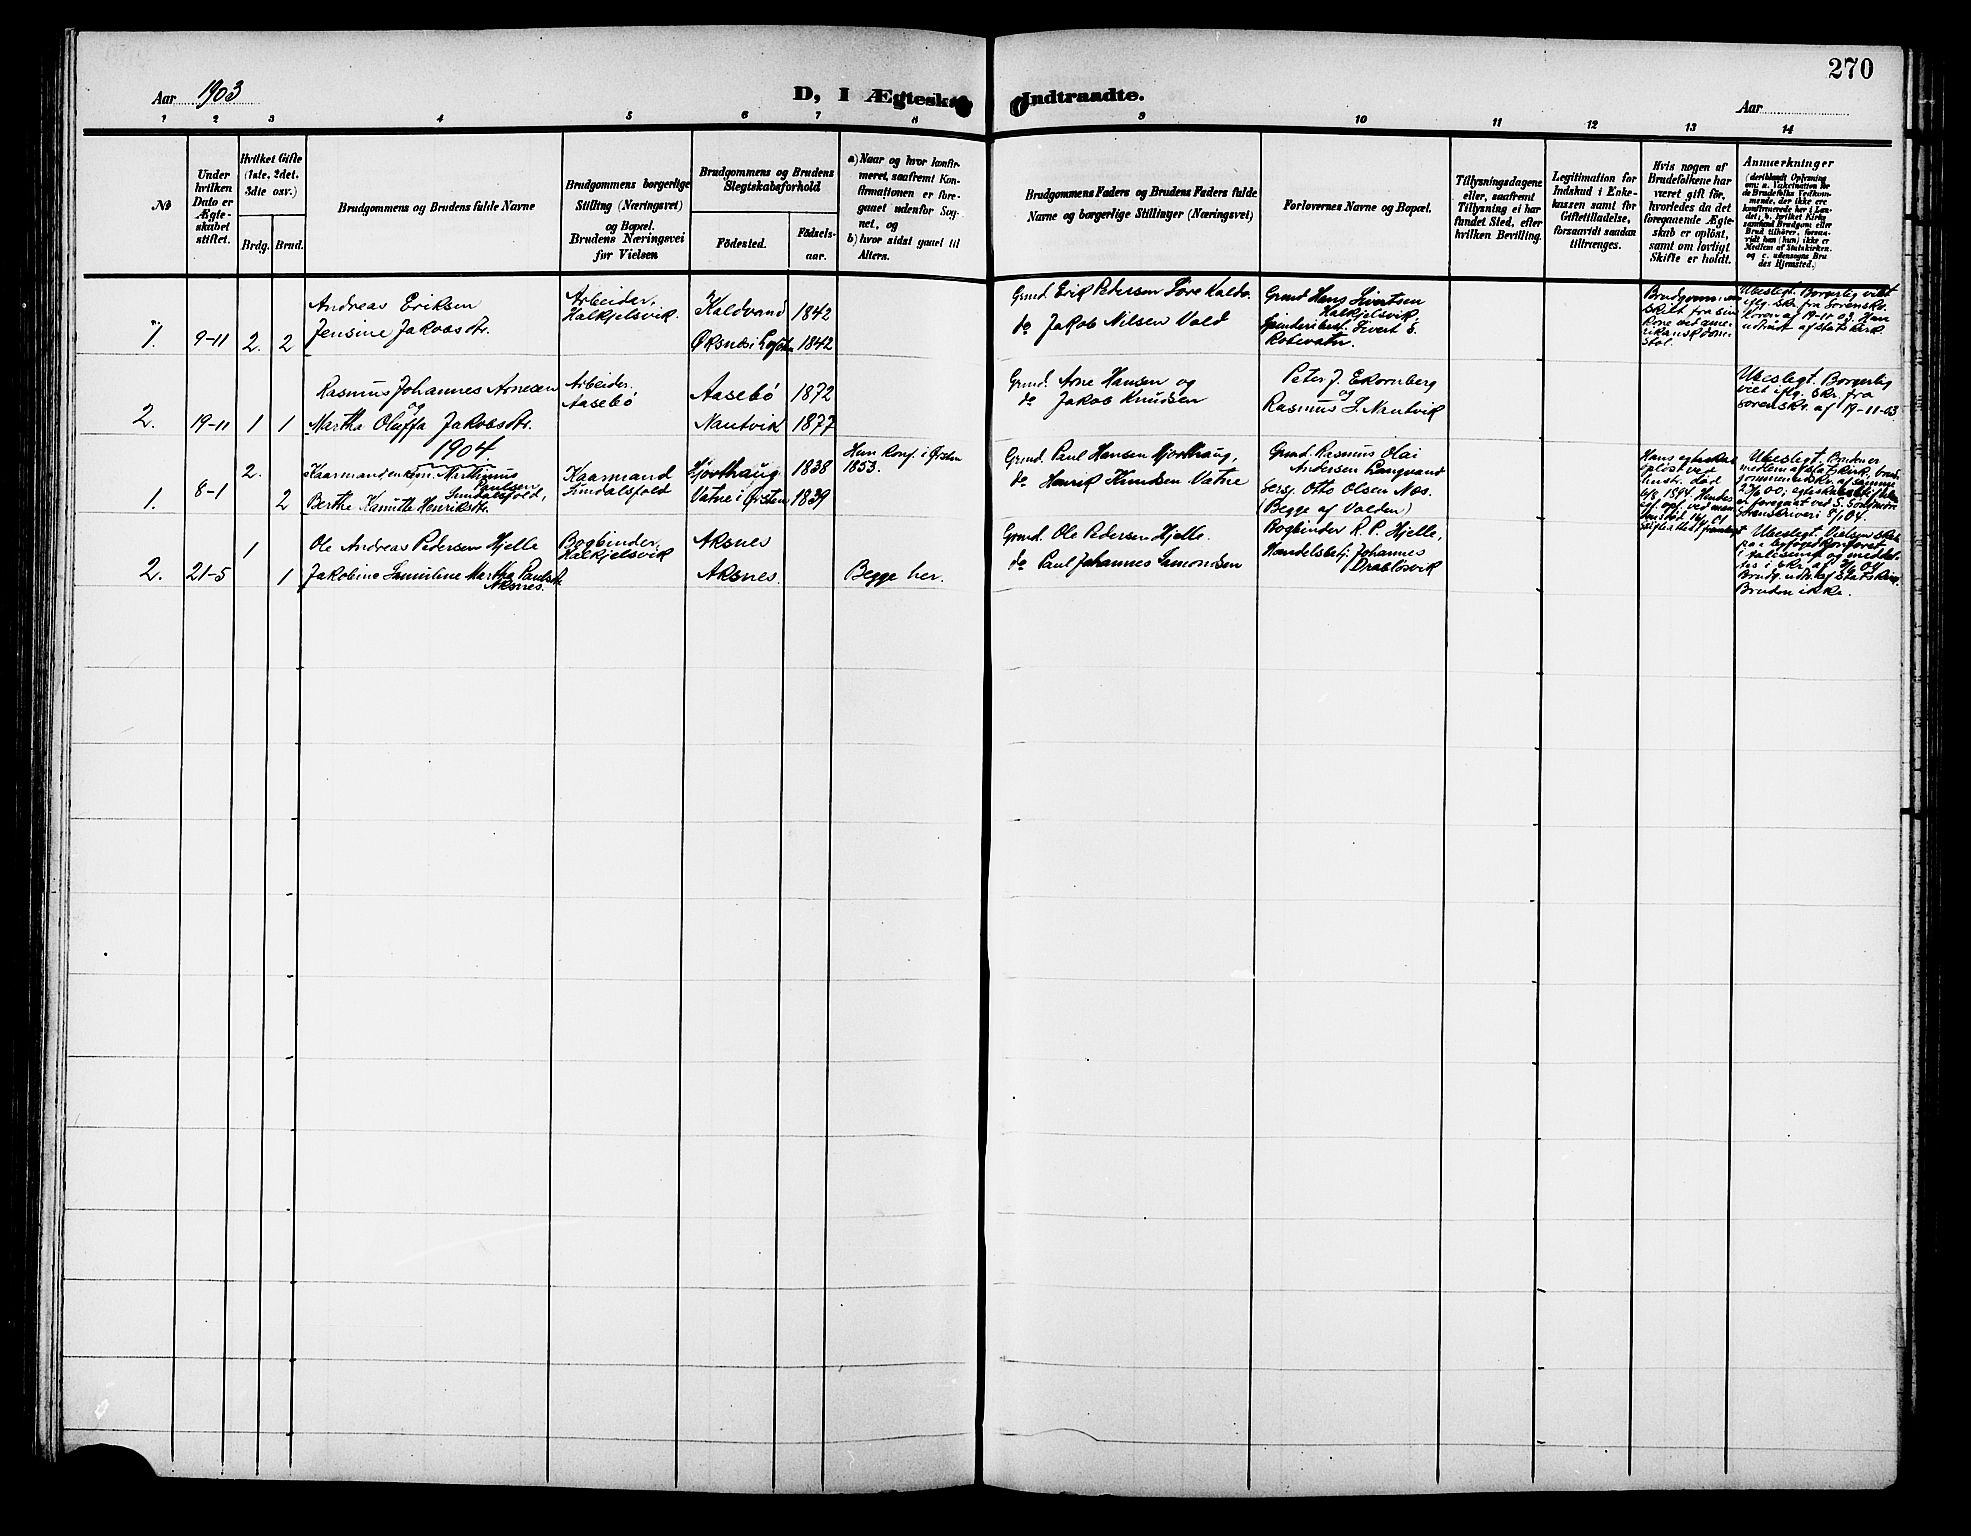 270
Aar 1903
D, I Ægteskab Indtraadte.
Aar
1 2 3 4 5 6 7 8 9 10 11 12 13 14
No
Under
hvilken
Dato er
Ægte-
skabet
stiftet.
Hvilket Gifte
(1ste, 2det,
3die osv.)
Brdg. Brud.
Brudgommens og Brudens fulde Navne
Brudgommens borgerlige
Stilling (Næringsvei)
og Bopæl.
Brudens Næringsvei
før Vielsen
Brudgommens og Brudens
Slegtskabsforhold
Födested.
Födsels-
aar.
a) Naar og hvor konfir-
meret, saafremt Kon-
firmationen er fore-
gaaet udenfor Sog-
net, og
b) hvor sidst gaaet til
Alters.
Brudgommens Faders og Brudens Faders fulde
Navne og borgerlige Stillinger (Næringsvei)
Forlovernes Navne og Bopæl.
Tillysningsdagene
eller, saafremt
Tillysning ei har
fundet Sted, efter
hvilken Bevilling.
Legitimation for
Indskud i Enke-
kassen samt for
Giftetilladelse,
forsaavidt saadan
tiltrænges.
Hvis nogen af
Brudefolkene har
været gift før,
hvorledes da det
foregaaende Ægte-
skab er oplöst,
samt om lovligt
Skifte er holdt.
Anmærkninger
(deriblandt Oplysning
om: a. Vakcination for
de Brudefolks Vedkom-
mende, der ikke ere
konfirmerede her i Lan-
det; b. hvilket Kirke-
samfund Brudgom eller
Brud tilhører, forsaa-
vidt han (hun) ikke er
Medlem af Statskirken.
og c. udensogns Bru-
des Hjemsted.)
1. 9-11 2. 2
Andreas Eriksen
Jensine Jakobsdtr.
Arbeider,
Halkjelsvik.
Kaldvand 1842
Øksnes i Lofoten 1842
Grmd. Erik Petersen Løre Kaldv.
do Jakob Nilsen Vold
Grmd Hans Sivertsen
Halkjelsvik,
Sivert S.
Robevatn.
Brudgommen
skilt fra sin
kone ved ame-
rikansk dom-
stol.
Ubeslegt. Borgerlig viet
iflg. skr. fra Sorenskr.
af 19-11 03. Han
udtraadt af statskirk.
2. 19-11 1 1
Rasmus Johannes Arnesen
og
Martha Oluffa Jakobsdtr.
Arbeider.
Aasebö
Aasebö 1872
Nautvik 1877
Grmd. Arne Hansen og
do Jakob Knudsen
Peter J. Ekornberg
og
Rasmus S. Nautvik
Ubeslegt. Borgerlig
viet iflg. skr. fra
Sorenskr. af 19-11-03.
1904.
1. 8-1 2. 2
Kaarmand enkem. Mathinus
Paulsen
Sundalsfold,
Berthe Kamitte Henriksdtr.
Kaarmand
Sundalsfold
Hjorthaug 1838
Vatne i Ørsten 1839
Hun konf. i Ørsten
1853.
Grmd. Paul Hansen Hjorthaug,
do Henrik Knudsen Vatne
Grmd. Rasmus Olai
Andersen Langvand
Sersj. Otto Olsen Nos.
(Begge af Volden)
Hans egteskab
opløst ved
hustr. død
6/8 1894. Hendes
Ubeslegt. Bruden er
medlem af statskirk. brud-
gommen
foregaat ved S. Søndmør
Sorenskriveri 8/1 04.
2. 21-5 1 1
Ole Andreas Pedersen Hjelle
Jakobine Samuline Martha Paulsdt.
Aksnes.
Bogbinder,
Halkjelsvik
Aksnes
Aksnes
Begge her.
Grmd. Ole Pedersen Hjelle.
do Paul Johannes Samonsen
Bogbinder R. P. Hjelle,
Handelsbetj. Johannes
Drabløsvik
Ubeslegt. Vielsen
paa byfogedkontoret
i Aalesund og meddel-
tes i skr. af
Brudg. udtr. af statskirken,
Bruden ikke.